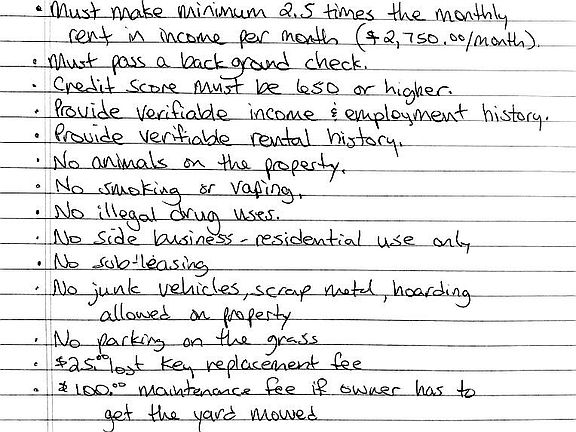 • Must make minimum 2.5 times the monthly
rent in income per month ($2,750.00/month).
• Must pass a background check.
• Credit score must be 650 or higher.
• Provide verifiable income & employment history.
• Provide verifiable rental history.
• No animals on the property.
• No smoking or vaping.
• No illegal drug uses.
• No side business - residential use only
• No sub-leasing
• No junk vehicles, scrap metal, hoarding
allowed on property
• No parking on the grass
• $25.00 lost key replacement fee
• $100.00 maintenance fee if owner has to
get the yard mowed